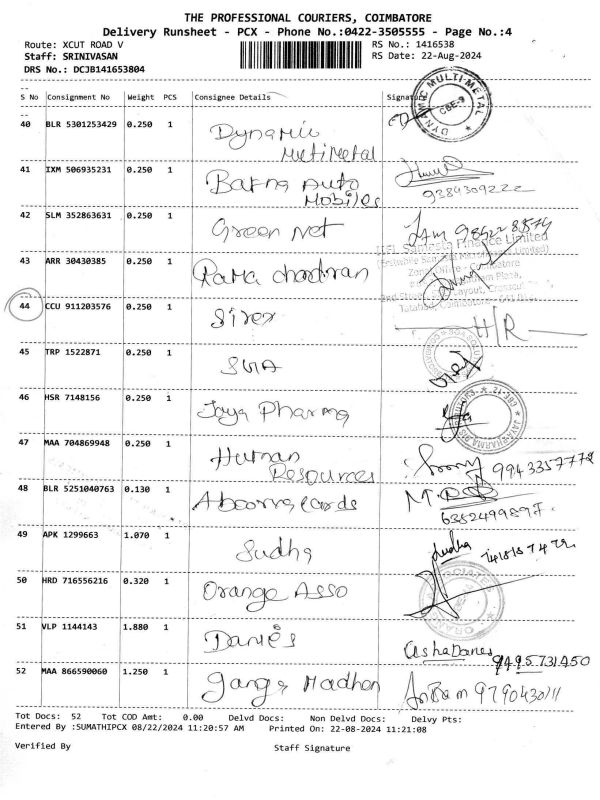 THE PROFESSIONAL COURIERS, COIMBATORE
Delivery Runsheet - PCX - Phone No.:0422-3505555 - Page No.:4
Route: XCUT ROAD V RS No.: 1416538
Staff: SRINIVASAN RS Date: 22-Aug-2024
DRS No.: DCJB141653804
S No Consignment No Weight PCS Consignee Details Signature
40 BLR 5301253429 0.250 1 Dynamic
MultiMetal
DYNAMIC MULTI METAL
CBE-9
41 IXM 506935231 0.250 1 Barna Auto
Mobiles 9384309222
42 SLM 352863631 0.250 1 Green Net
43 ARR 30430385 0.250 1 Rama chandran
Finance Limited
44 CCU 911203576 0.250 1 H/R
45 TRP 1522871 0.250 1
46 HSR 7148156 0.250 1 Jaya Pharma
47 MAA 704869948 0.250 1 Human
Resources
48 BLR 5251040763 0.130 1 cards
49 APK 1299663 1.070 1 Sudha Sudha
50 HRD 716556216 0.320 1 Orange Asso
51 VLP 1144143 1.880 1 Daniés
9495731450
52 MAA 866590060 1.250 1 Madhan
Tot Docs: 52 Tot COD Amt: 0.00 Delvd Docs: Non Delvd Docs: Delvy Pts:
Entered By :SUMATHIPCX 08/22/2024 11:20:57 AM Printed On: 22-08-2024 11:21:08
Verified By Staff Signature